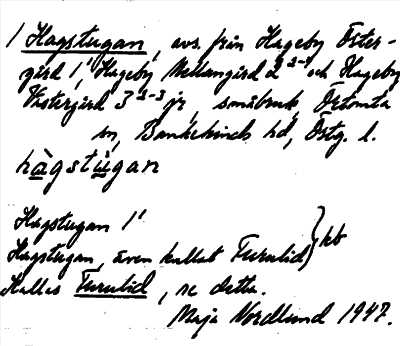 1 Hagstugan, avs. från Hageby Öster-
gård 1¹, Hageby Mellangård 2²⁻³ och Hageby
Västergård 3²⁻³ jr, småbruk, Örtomta
sn, Bankekinds hd, Östg. l.
hàgstùgan
Hagstugan 1¹
Hagstugan, även kallat Turulid } kb
Kallas Turulid, se detta.
Maja Nordlund 1947.